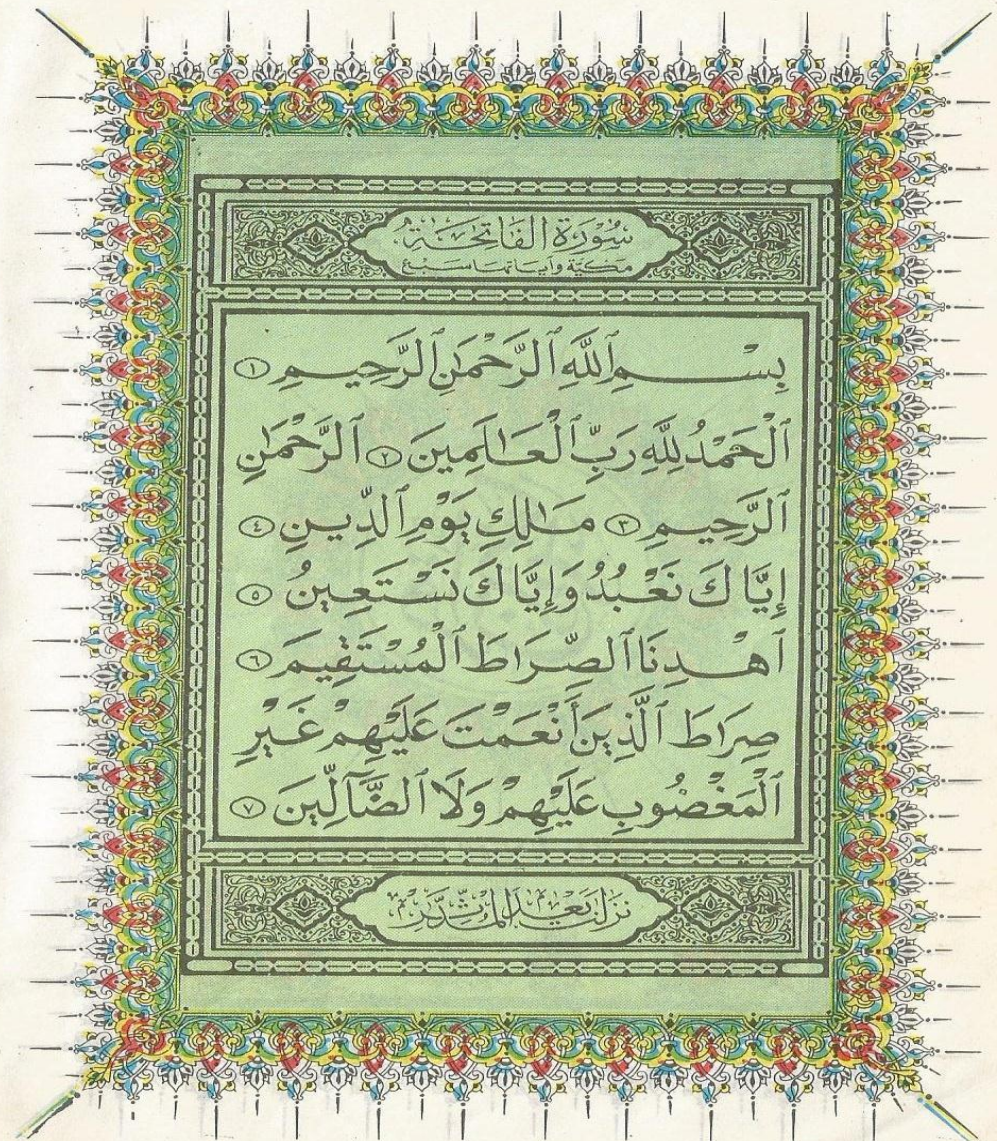 سُورَةُ الفَاتِحَةِ
مَكيّة وآياتها سَبْع
بِسْمِ ٱللَّهِ ٱلرَّحْمَٰنِ ٱلرَّحِيمِ ١
ٱلْحَمْدُ لِلَّهِ رَبِّ ٱلْعَٰلَمِينَ ٢ ٱلرَّحْمَٰنِ
ٱلرَّحِيمِ ٣ مَٰلِكِ يَوْمِ ٱلدِّينِ ٤
إِيَّاكَ نَعْبُدُ وَإِيَّاكَ نَسْتَعِينُ ٥
ٱهْدِنَا ٱلصِّرَاطَ ٱلْمُسْتَقِيمَ ٦
صِرَاطَ ٱلَّذِينَ أَنْعَمْتَ عَلَيْهِمْ غَيْرِ
ٱلْمَغْضُوبِ عَلَيْهِمْ وَلَا ٱلضَّآلِّينَ ٧
نزلت بعد المدّثّر